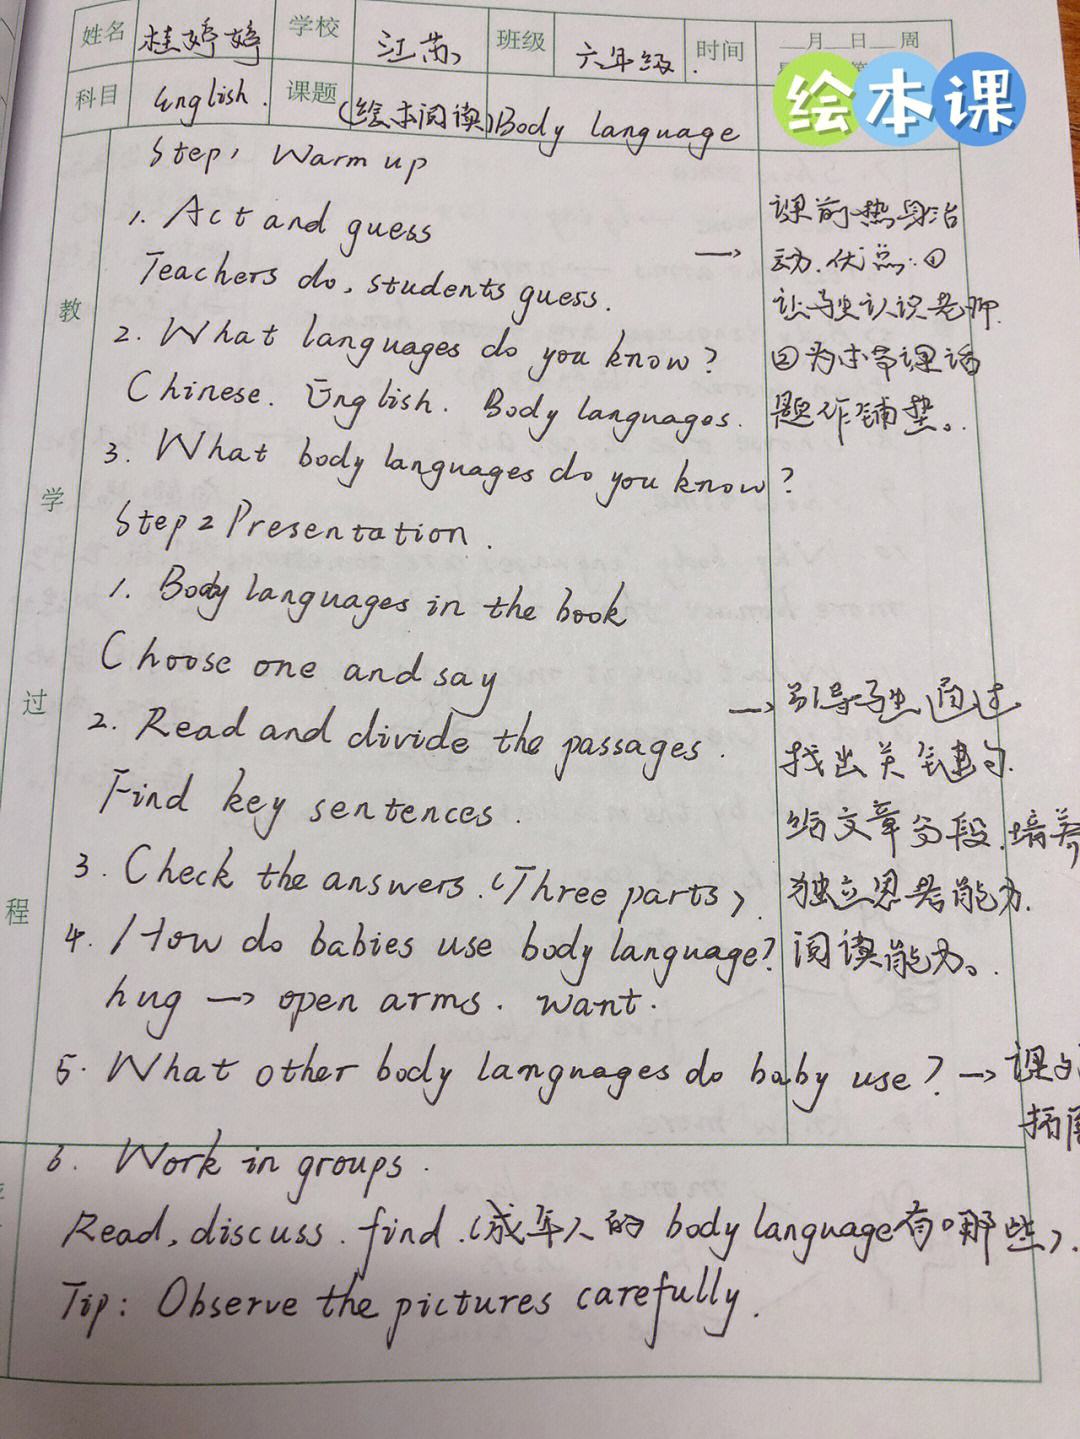 姓名 桂婷婷 学校 江苏 班级 六年级 时间 __月__日__周
绘本课
科目 English. 课题 (绘本阅读)Body language
教学过程
Step1 Warm up
1. Act and guess
Teachers do, students guess.
2. What languages do you know?
Chinese. English. Body languages.
3. What body languages do you know?
→ 课前热身活
动.优点:①
让学生认识老师.
②为本节课话
题作铺垫。
Step 2 Presentation.
1. Body languages in the book
Choose one and say
2. Read and divide the passages.
Find key sentences.
3. Check the answers.(Three parts).
4. How do babies use body language?
hug → open arms. want.
→ 引导学生通过
找出关键句.
给文章分段.培养
独立思考能力.
阅读能力。
5. What other body languages do baby use? → 课
拓
6. Work in groups.
Read, discuss. find.(成年人的 body language有哪些).
Tip: Observe the pictures carefully.